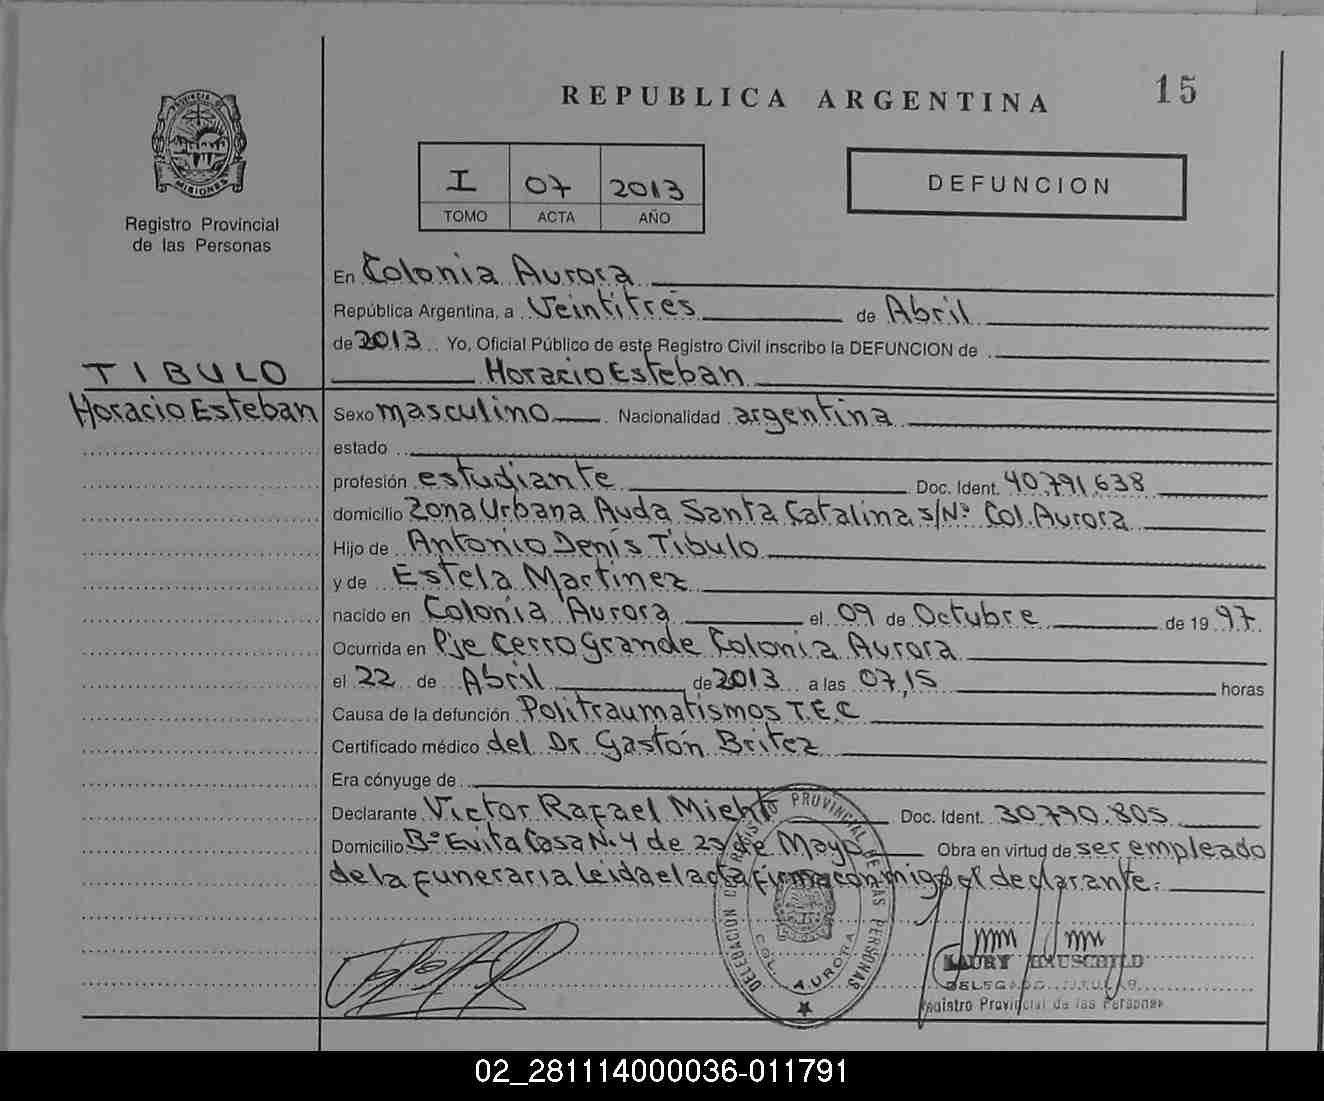 REPUBLICA ARGENTINA
15
PROVINCIA DE
MISIONES
Registro Provincial
de las Personas
I 07 2013
TOMO ACTA AÑO
DEFUNCION
En Colonia Aurora
República Argentina, a Veintitres de Abril
de 2013 Yo, Oficial Público de este Registro Civil inscribo la DEFUNCION de
TIBULO
Horacio Esteban
Horacio Esteban
Sexo masculino Nacionalidad argentina
estado
profesión estudiante Doc. Ident. 40.791.638
domicilio Zona Urbana Avda Santa Catalina s/Nº Col. Aurora
Hijo de Antonio Denis Tibulo
y de Estela Martinez
nacido en Colonia Aurora el 09 de Octubre de 1997
Ocurrida en Pje Cerro Grande Colonia Aurora
el 22 de Abril de 2013 a las 07,15 horas
Causa de la defunción Politraumatismos T.E.C
Certificado médico del Dr Gastón Britez
Era cónyuge de
Declarante Victor Rafael Doc. Ident. 30.790.805
Domicilio Bº Evita Casa N.4 de 25 de Mayo Obra en virtud de ser empleado
de la funeraria leida el acta firma conmigo el declarante.
DELEGACION DEL REGISTRO PROVINCIAL DE LAS PERSONAS
COL. AURORA
LAURY HAUSCHILD
DELEGADO TITULAR
Registro Provincial de las Personas
02_281114000036-011791